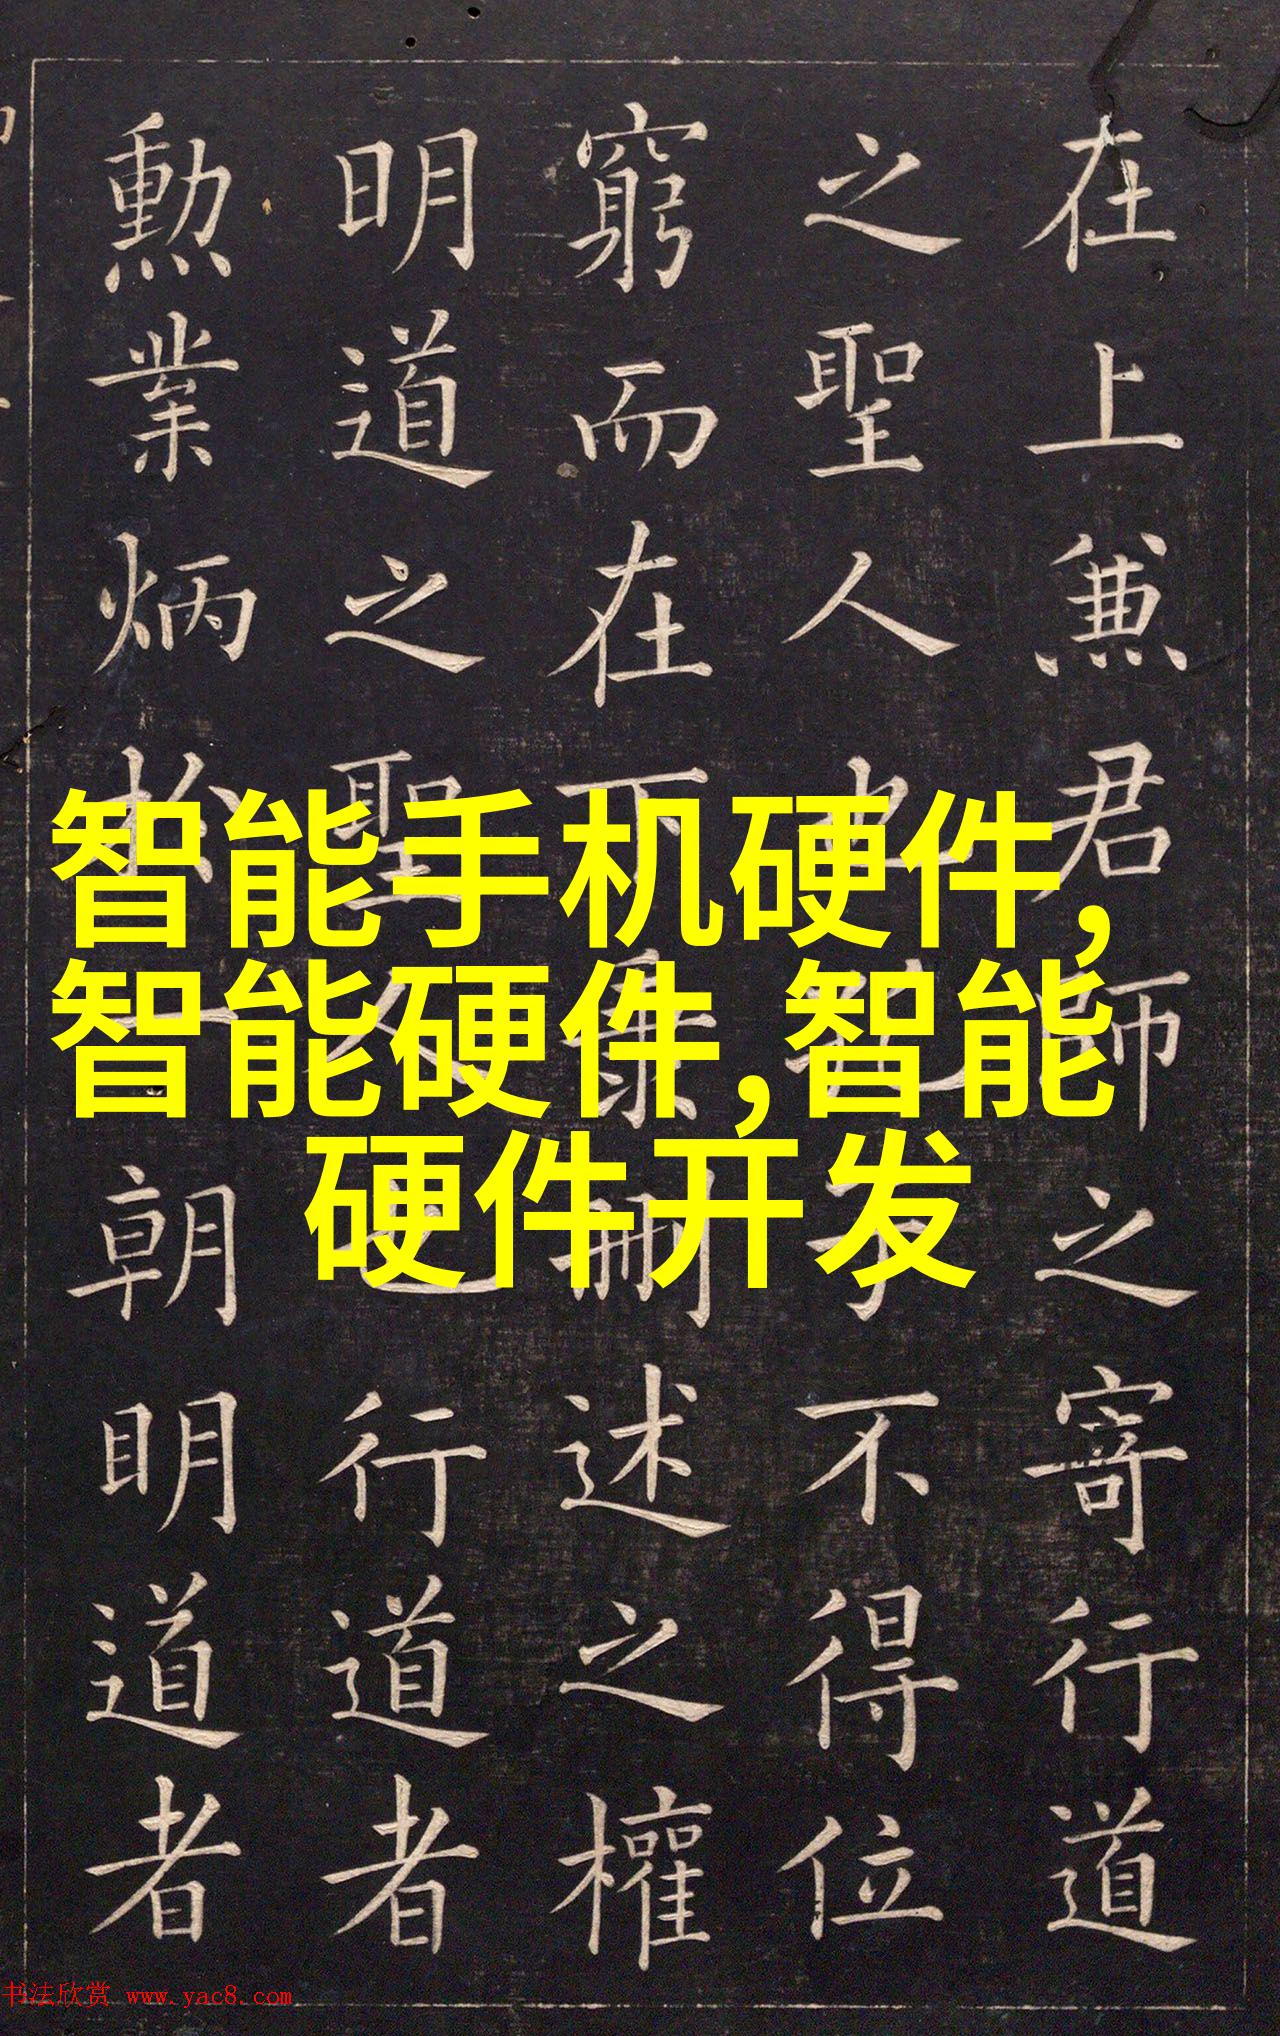 在上兼君師之寄行道
之聖人也孔子不得位
窮而在下秉刪述之權
明道之聖人也行道者
勳業炳於一朝明道者
智能手机硬件,
智能硬件,智能
硬件开发
书法欣赏 www.yac8.com